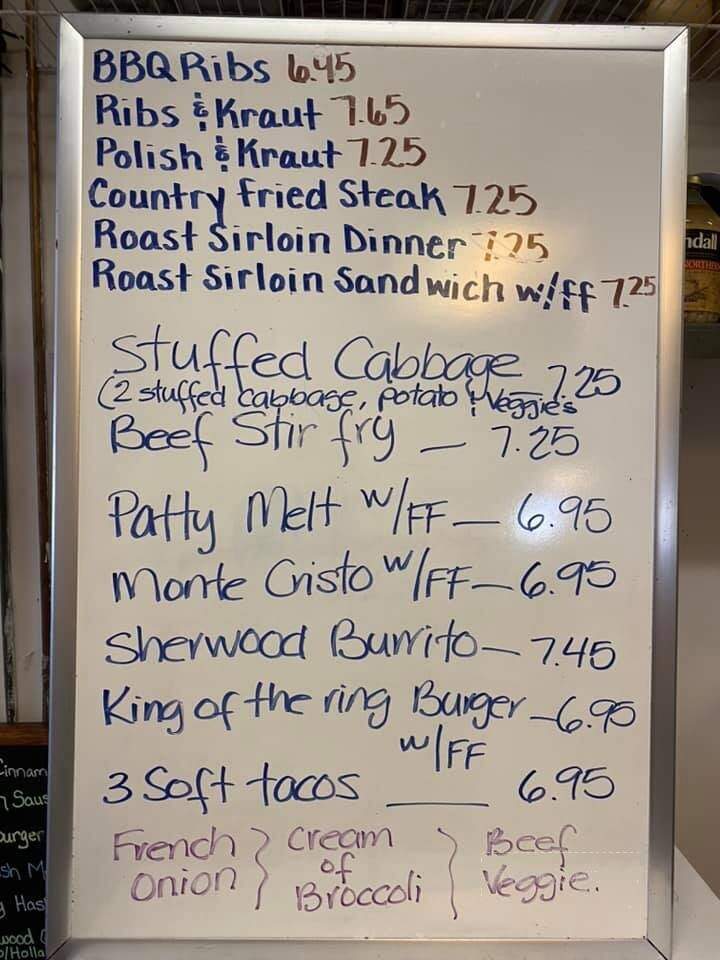 BBQ Ribs 6.45
Ribs & Kraut 7.65
Polish & Kraut 7.25
Country fried Steak 7.25
Roast Sirloin Dinner 7.25
Roast Sirloin Sandwich w/ff 7.25
Stuffed Cabbage 7.25
(2 stuffed cabbage, potato & Veggie's
Beef Stir fry — 7.25
Patty Melt w/FF — 6.95
Monte Cristo w/FF — 6.95
Sherwood Burrito — 7.45
King of the ring Burger — 6.95
w/FF
3 Soft tacos ___ 6.95
French Onion } Cream of Broccoli } Beef Veggie.
ndall
Cinnam
Saus
urger
sh M
Has
wood
o/Holla